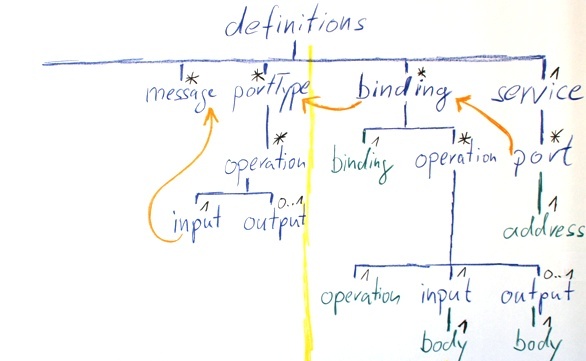 definitions
* * * 1
message portType binding service
* 1 * *
operation binding operation port
1 0..1 1
input output address
1 1 0..1
operation input output
1 1
body body